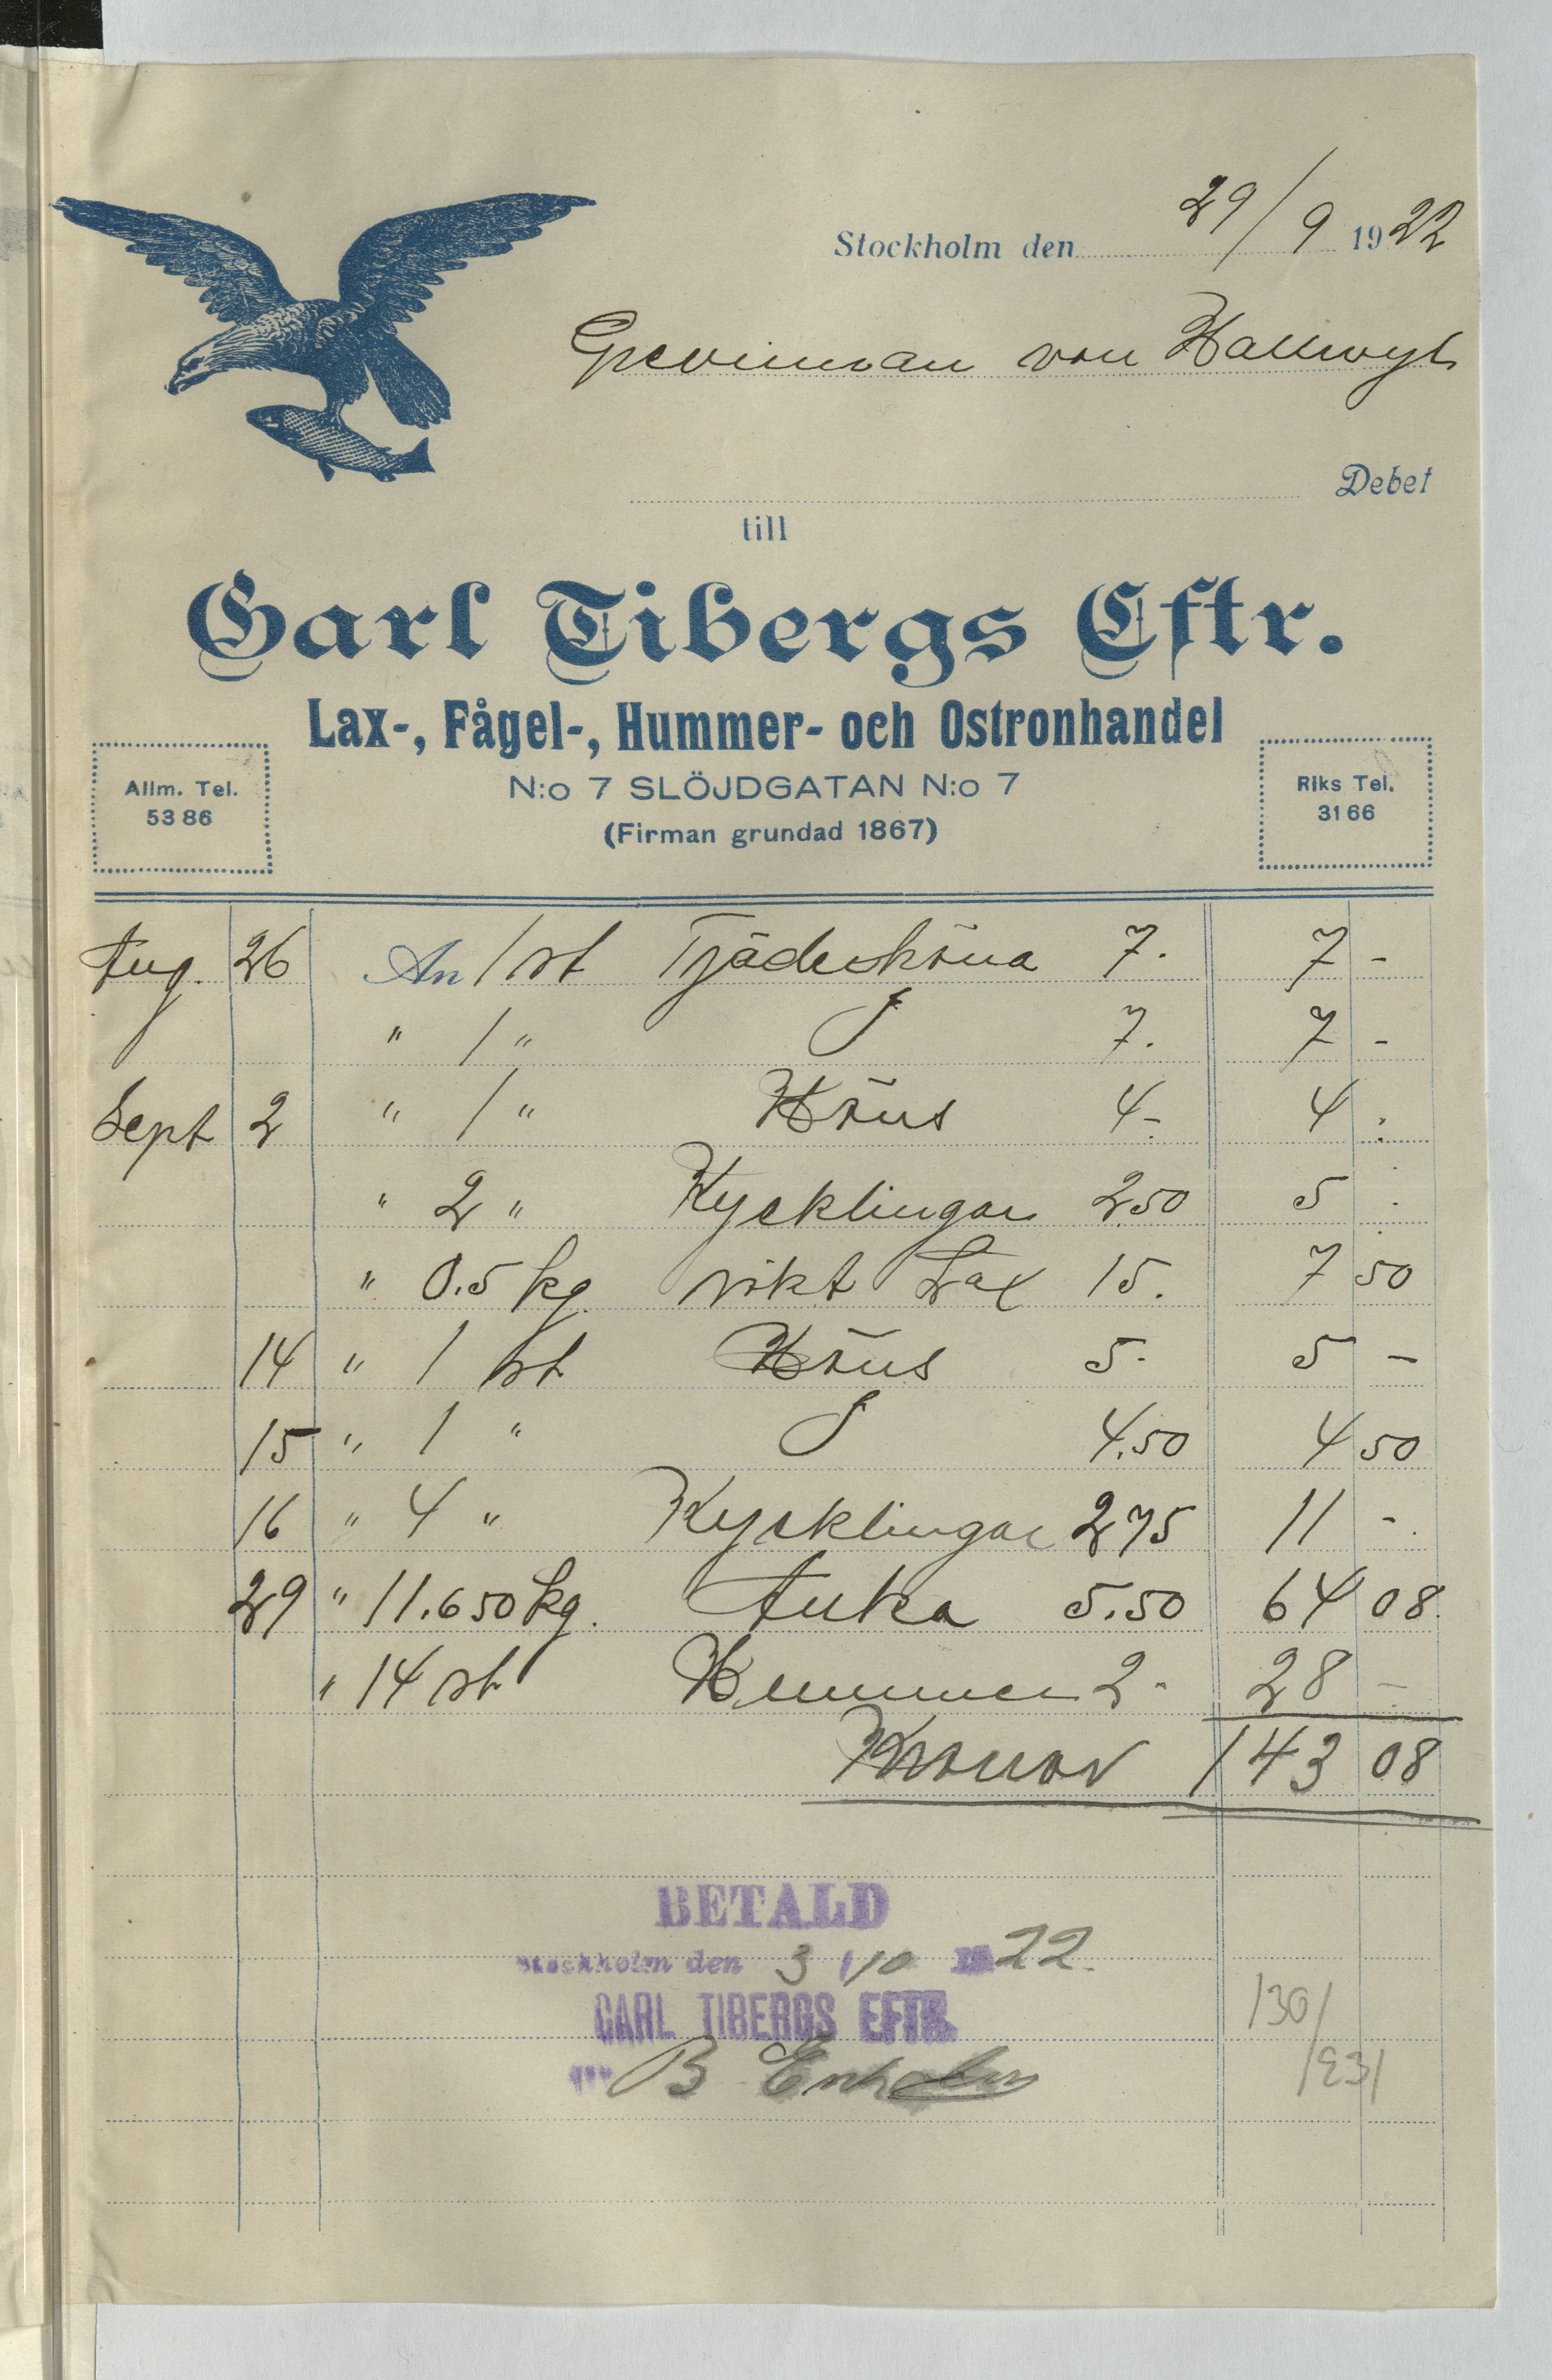 Stockholm den 29/9 1922
Grevinnan von Hallwyl
Debet
till
Carl Tibergs Eftr.
Lax-, Fågel-, Hummer- och Ostronhandel
N:o 7 SLÖJDGATAN N:o 7
(Firman grundad 1867)
Allm. Tel.
53 86
Riks Tel.
31 66
Aug. 26 An 1 st Tjäderhöna 7. 7 -
" 1 " 7. 7 -
Sept 2 " 1 " Höns 4- 4 .
" 2 " Kycklingar 2.50 5 .
" 0.5 kg. rökt Lax 15. 7 50
14 " 1 st Höns 5- 5 -
15 " 1 " 4.50 4 50
16 " 4 " Kycklingar 275 11 -
29 " 11.650 kg. Anka 5.50 64 08
" 14 st Hummer 2- 28 -
Kronor 143 08
BETALD
Stockholm den 3/10 1922.
CARL TIBERGS EFTR.
B
130/
1231